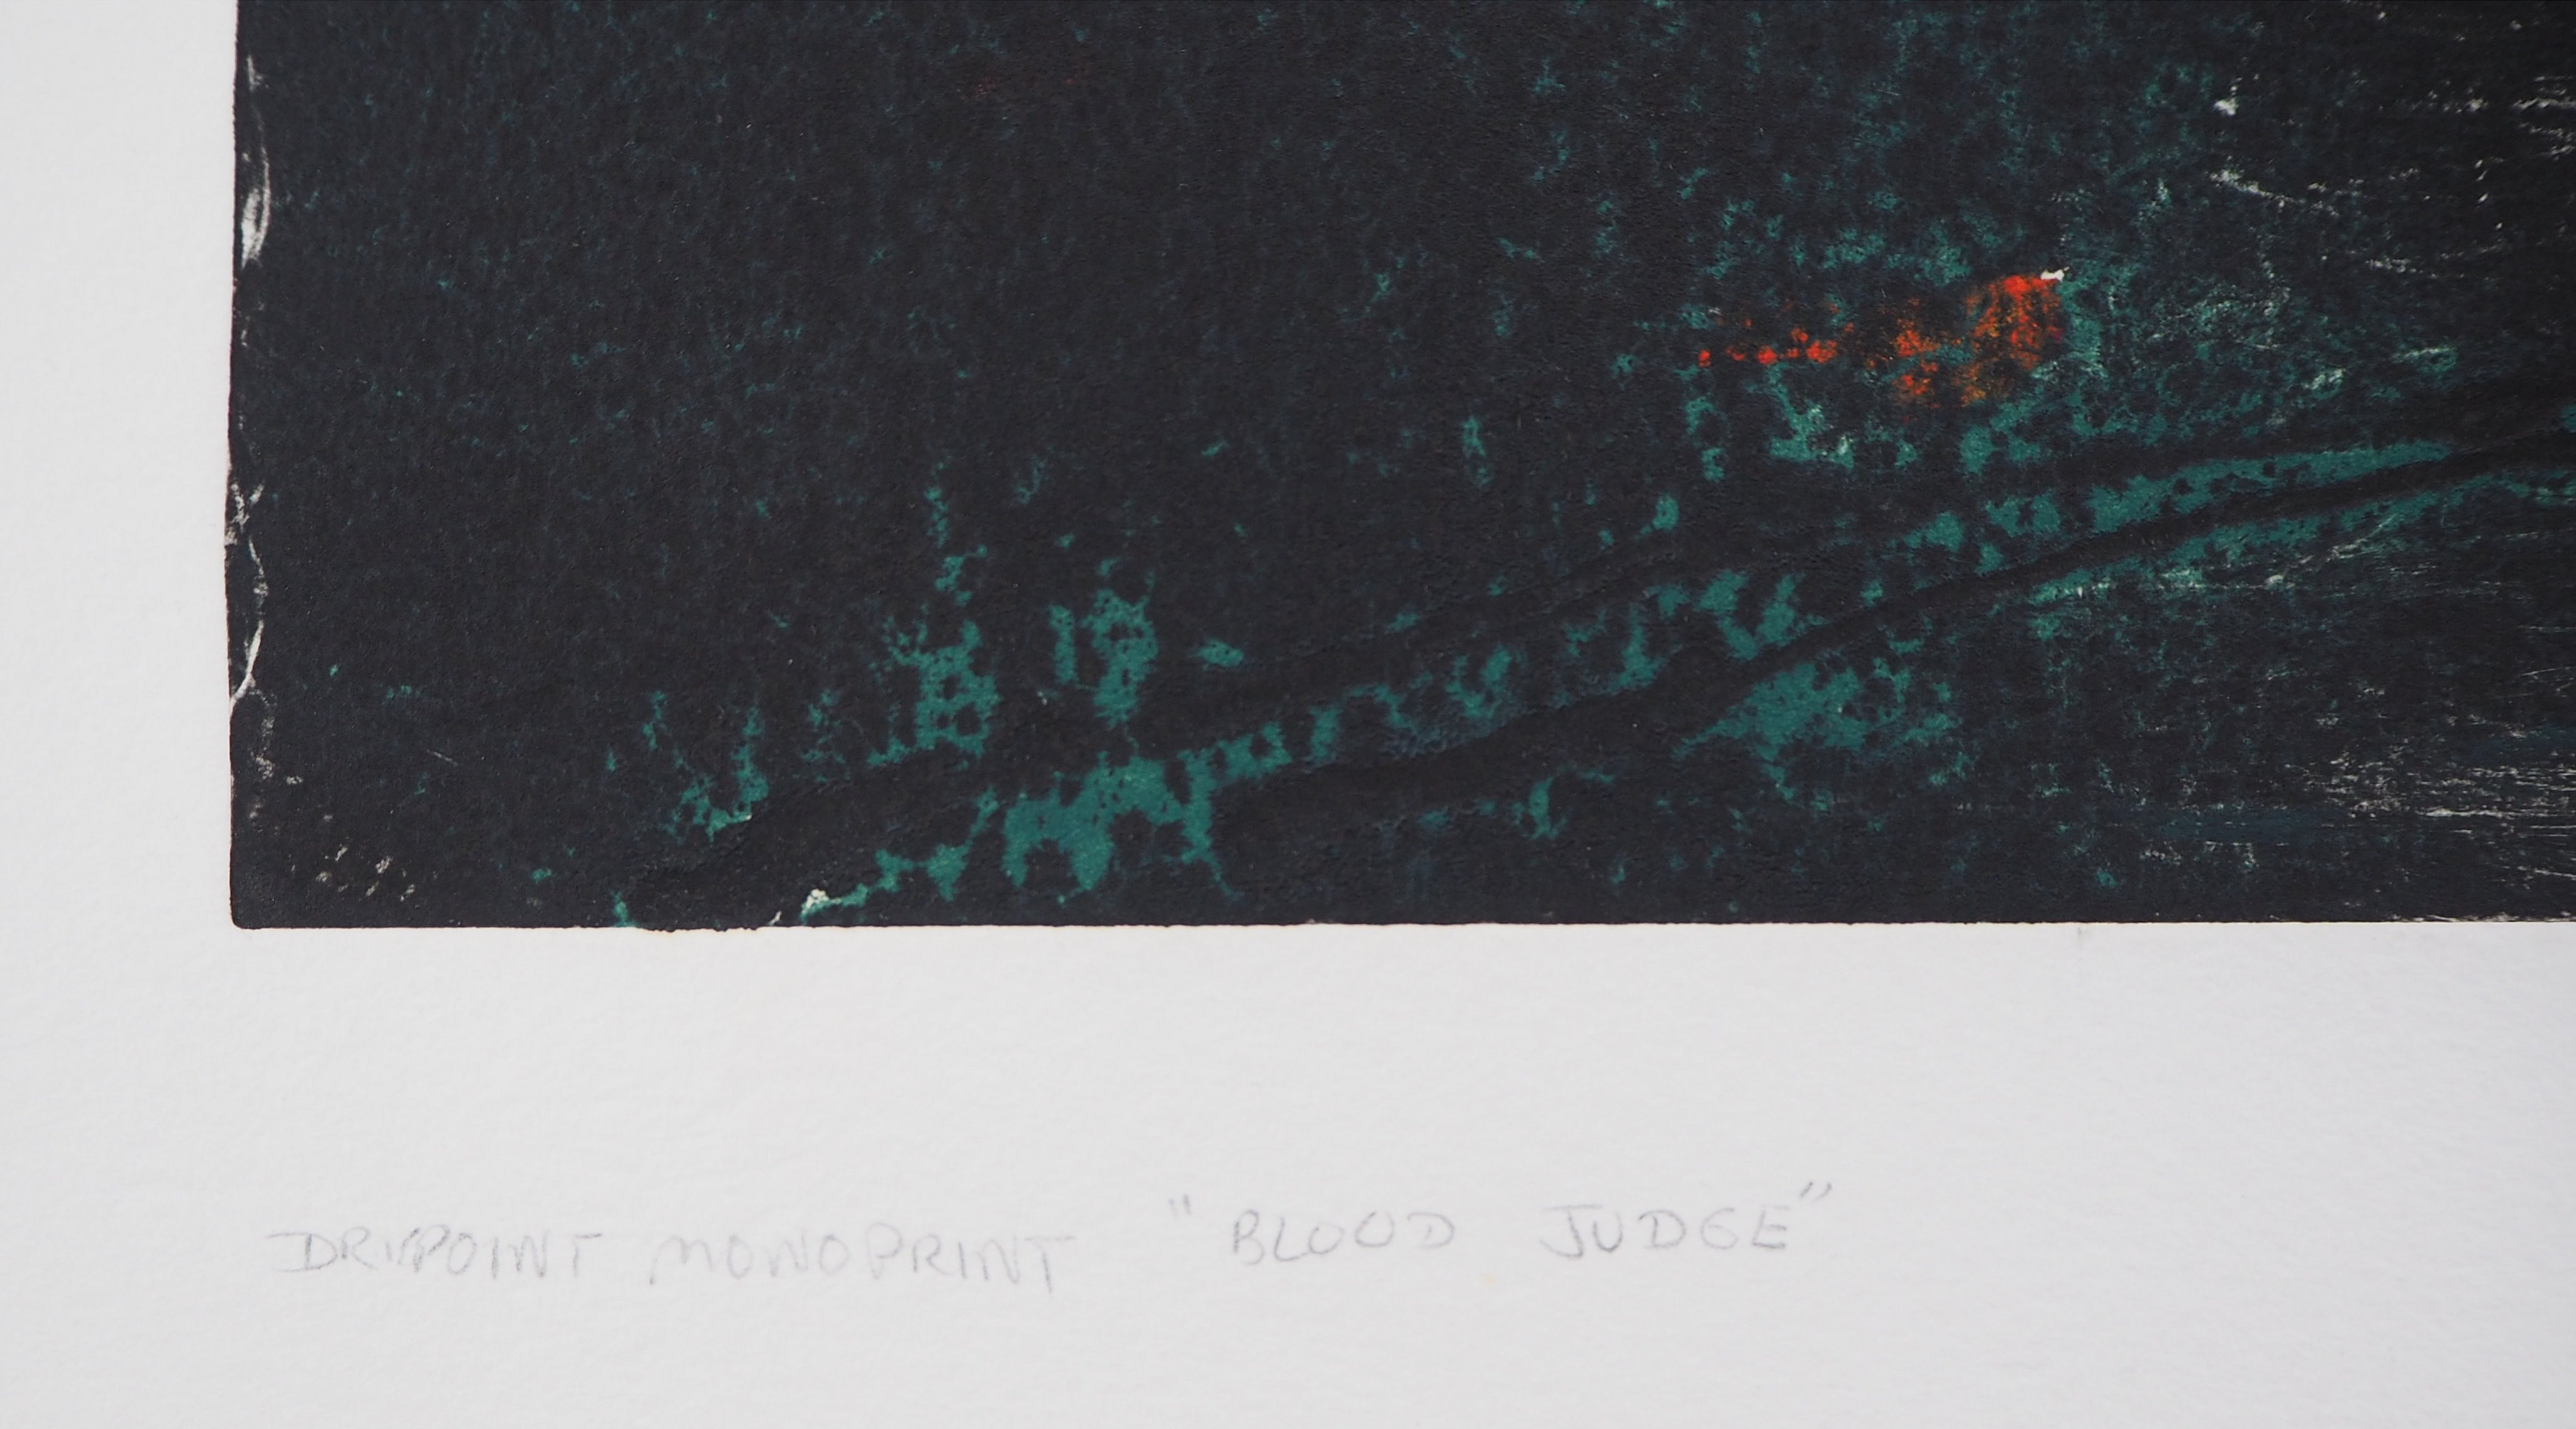 DRYPOINT MONOPRINT "BLOOD JUDGE"